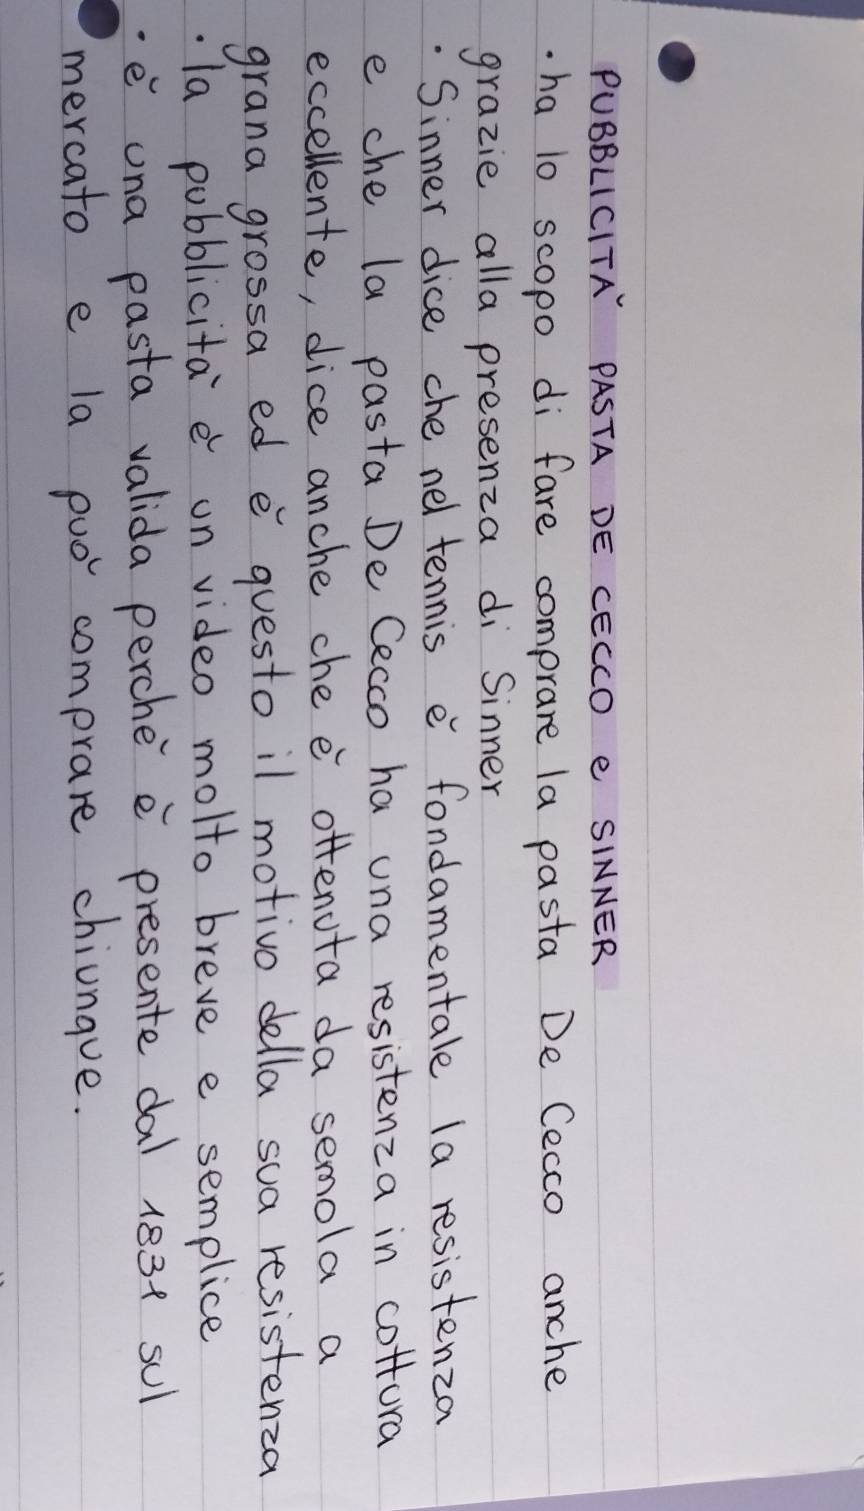 PUBBLICITÀ PASTA DE CECCO e SINNER
• ha lo scopo di fare comprare la pasta De Cecco anche
grazie alla presenza di Sinner
• Sinner dice che nel tennis è fondamentale la resistenza
e che la pasta De Cecco ha una resistenza in cottura
eccellente, dice anche che è ottenuta da semola a
grana grossa ed è questo il motivo della sua resistenza
• la pubblicità è un video molto breve e semplice
• è una pasta valida perchè è presente dal 1831 sul
mercato e la può comprare chiunque.